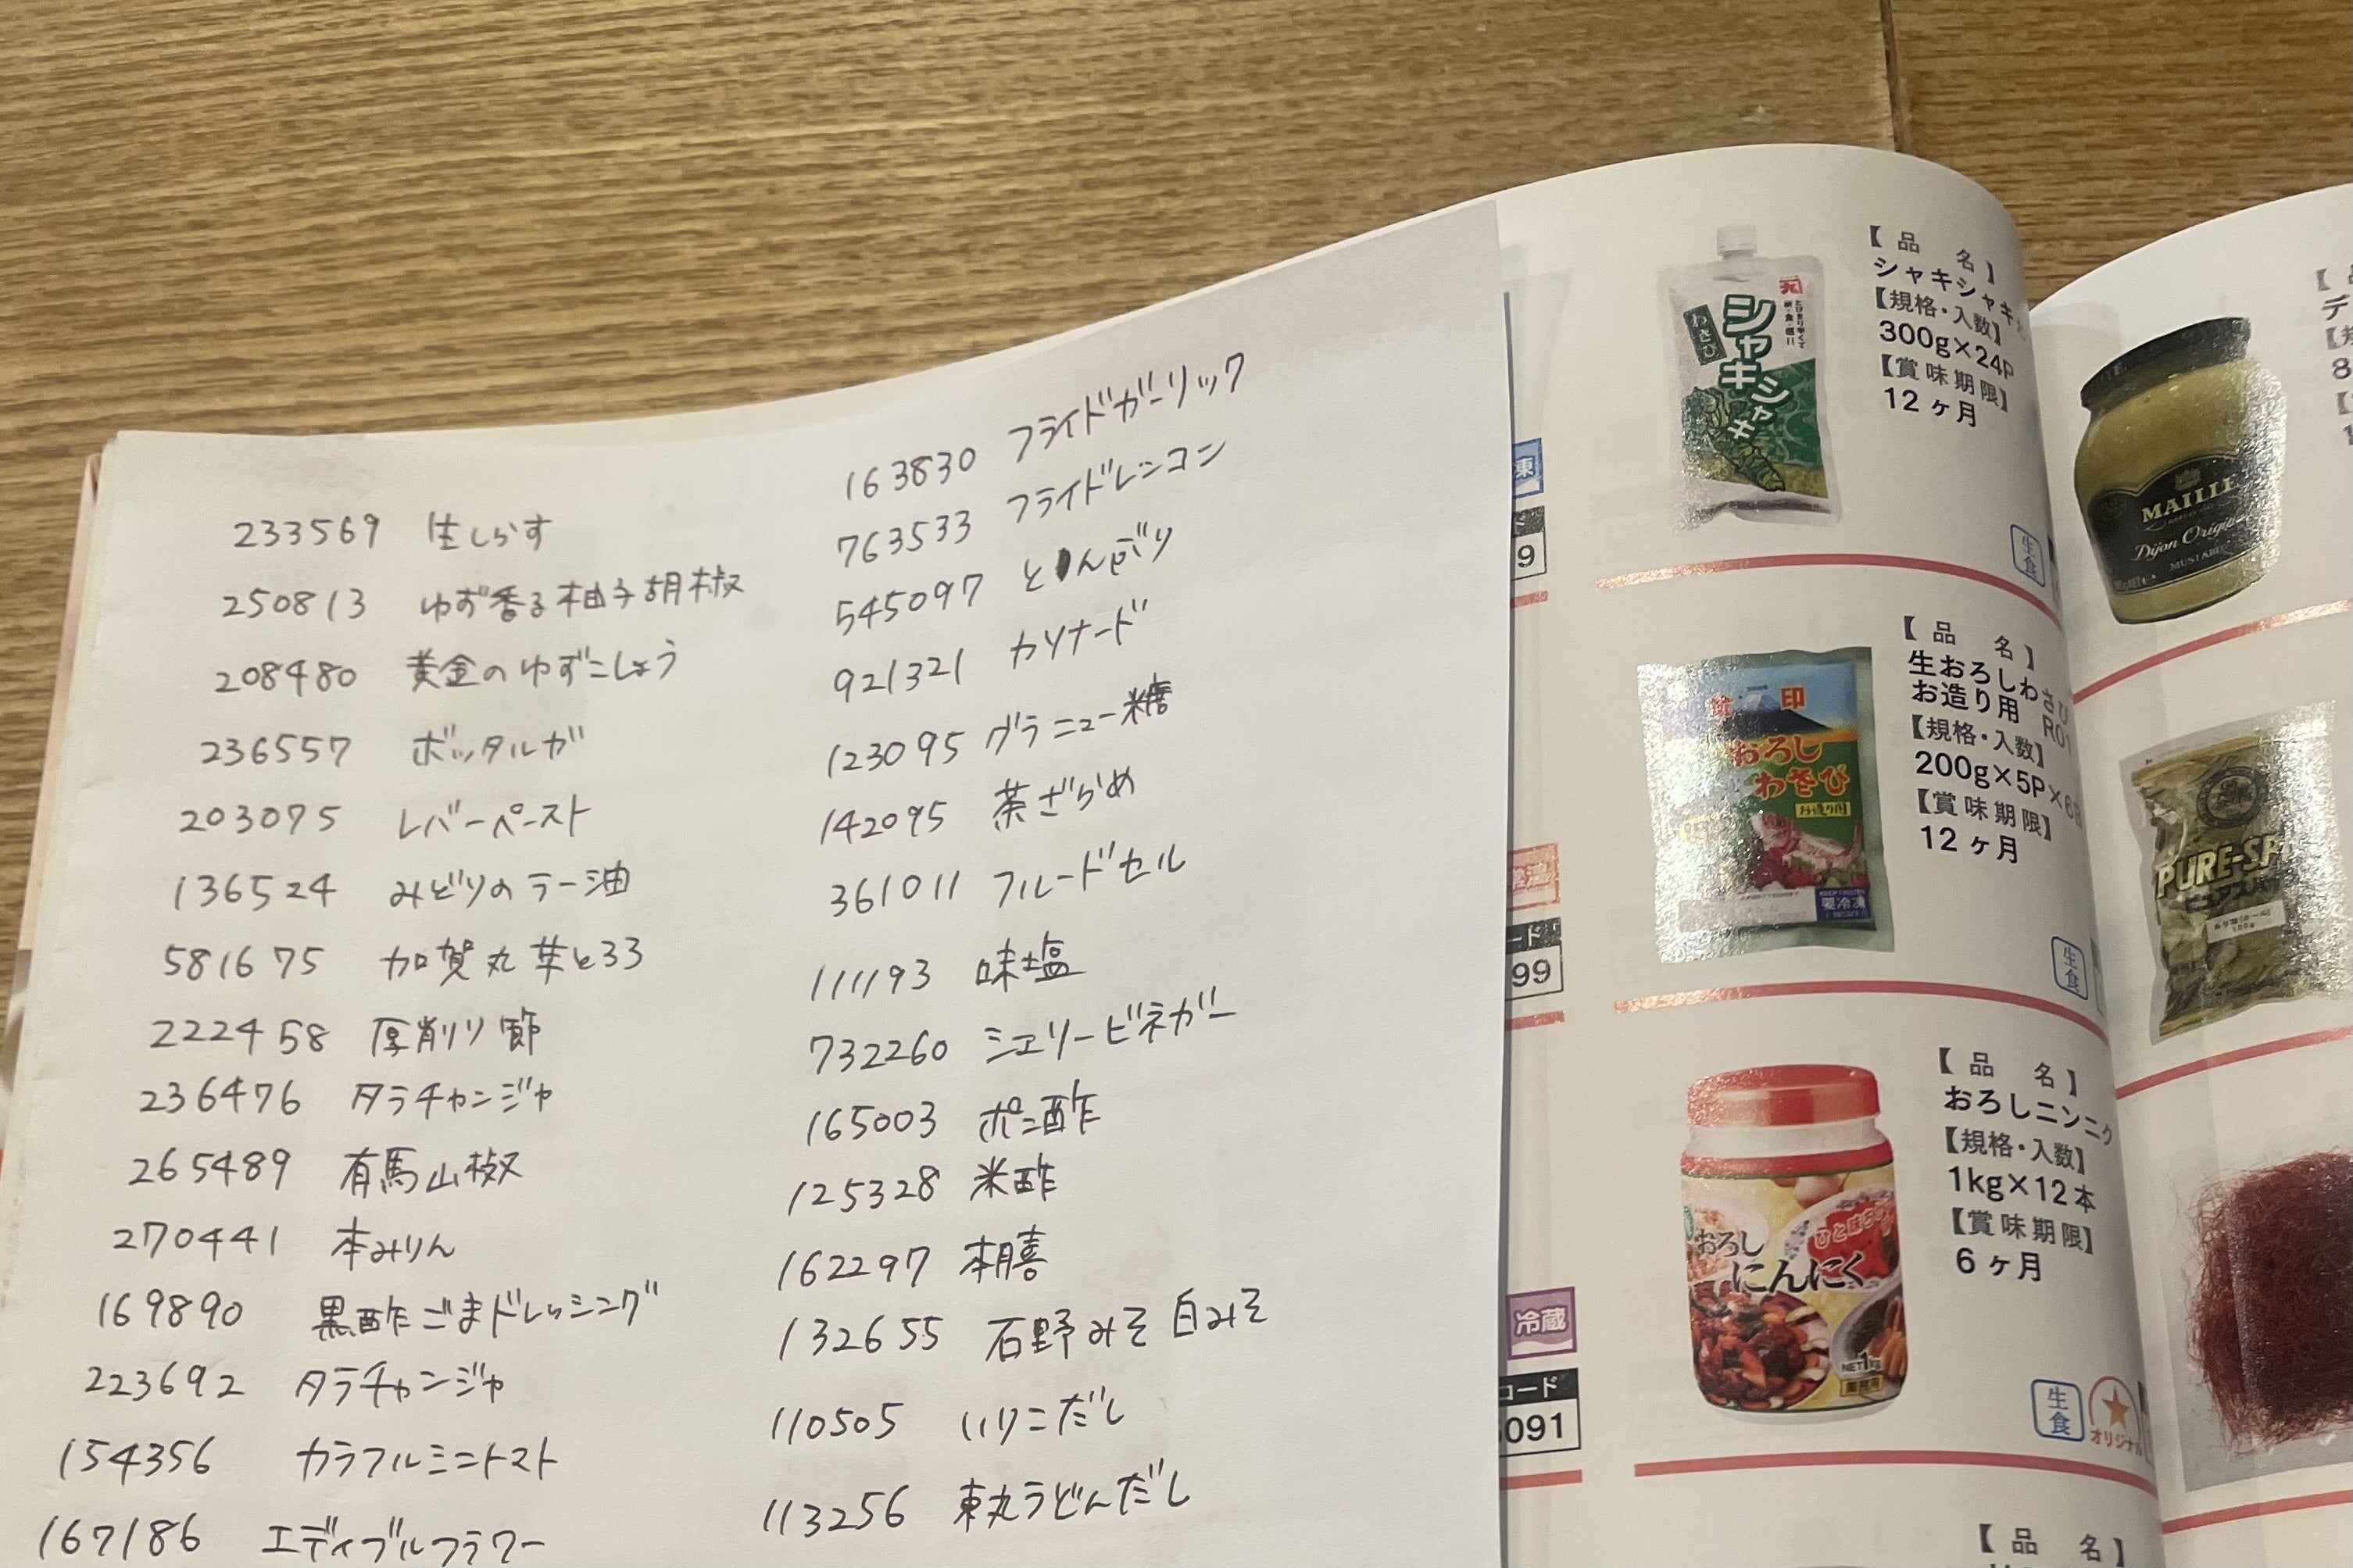 233569 生しらす
250813 ゆず香る柚子胡椒
208480 黄金のゆずこしょう
236557 ボッタルガ
203075 レバーペースト
136524 みどりのラー油
581675 加賀丸芋とろろ
222458 厚削り節
236476 タラチャンジャ
265489 有馬山椒
270441 本みりん
169890 黒酢ごまドレッシング
223692 タラチャンジャ
154356 カラフルミニトマト
167186 エディブルフラワー
163830 フライドガーリック
763533 フライドレンコン
545097 とんぶり
921321 カソナード
123095 グラニュー糖
142095 茶ざらめ
361011 フルードセル
111193 味塩
732260 シェリービネガー
165003 ポン酢
125328 米酢
162297 本膳
132655 石野みそ 白みそ
110505 いりこだし
113256 東丸うどんだし
凍
9
99
冷蔵
コード
5091
わさび
シャキシャキ
【品名】
シャキシャキ
【規格・入数】
300g×24P
【賞味期限】
12ヶ月
生食
印
おろし
わさび
お造り用
要冷凍
【品名】
生おろしわさび
お造り用 R01
【規格・入数】
200g×5P×6
【賞味期限】
12ヶ月
生食
おろし
にんにく
NET1kg
業務用
【品名】
おろしニンニク
【規格・入数】
1kg×12本
【賞味期限】
6ヶ月
生食
オリジナル
【品名】
MAILLE
Dijon Originale
MUSTARD
PURE-SP